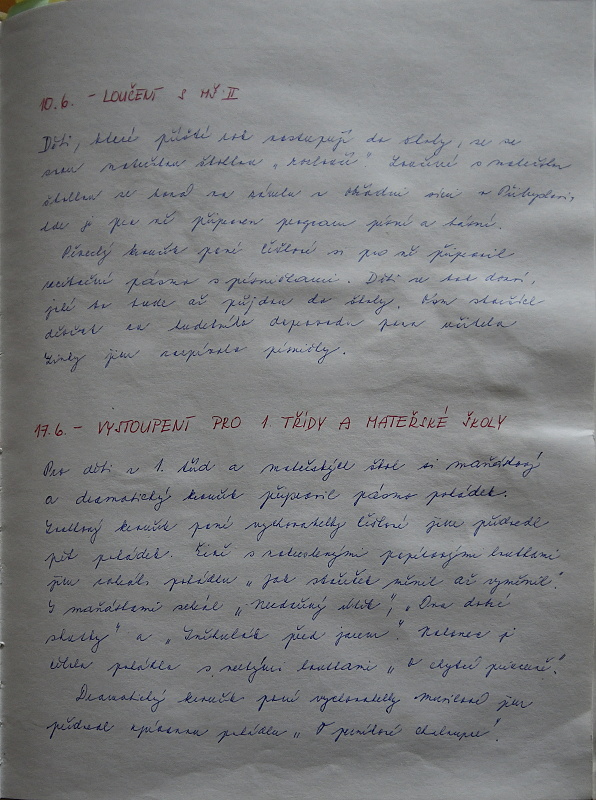 10.6. - LOUČENÍ S MŠ II
Děti, které příští rok nastupují do školy, se se
svou mateřskou školkou „rozloučí". Loučení s mateřskou
školkou se koná na zámku v obřadní síni v Přibyslavi
kde je pro ně připraven program písní a básní.
Pěvecký kroužek paní Číškové si pro ně připravil
recitační pásmo s písničkami. Děti se tak dozví,
jaké to bude až půjdou do školy. Osm starších
děvčat za hudebního doprovodu pana učitele
Linky jim zazpívalo písničky.
17.6. - VYSTOUPENÍ PRO 1 TŘÍDY A MATEŘSKÉ ŠKOLY
Pro děti z 1. tříd a mateřských škol si maňáskový
a dramatický kroužek připravil pásmo pohádek.
kroužek paní vychovatelky Číškové jim předvedl
pět pohádek. s papírovými loutkami
jim sehráli pohádku „Jak stařeček měnil až vyměnil".
S maňáskami sehráli „Nedočkavý", „Dva
" a „Sněhulák před jarem". Nakonec je
čekala pohádka s loutkami „O chytré princezně".
Dramatický kroužek paní vychovatelky jim
předvedl upravenou pohádku „O perníkové chaloupce".